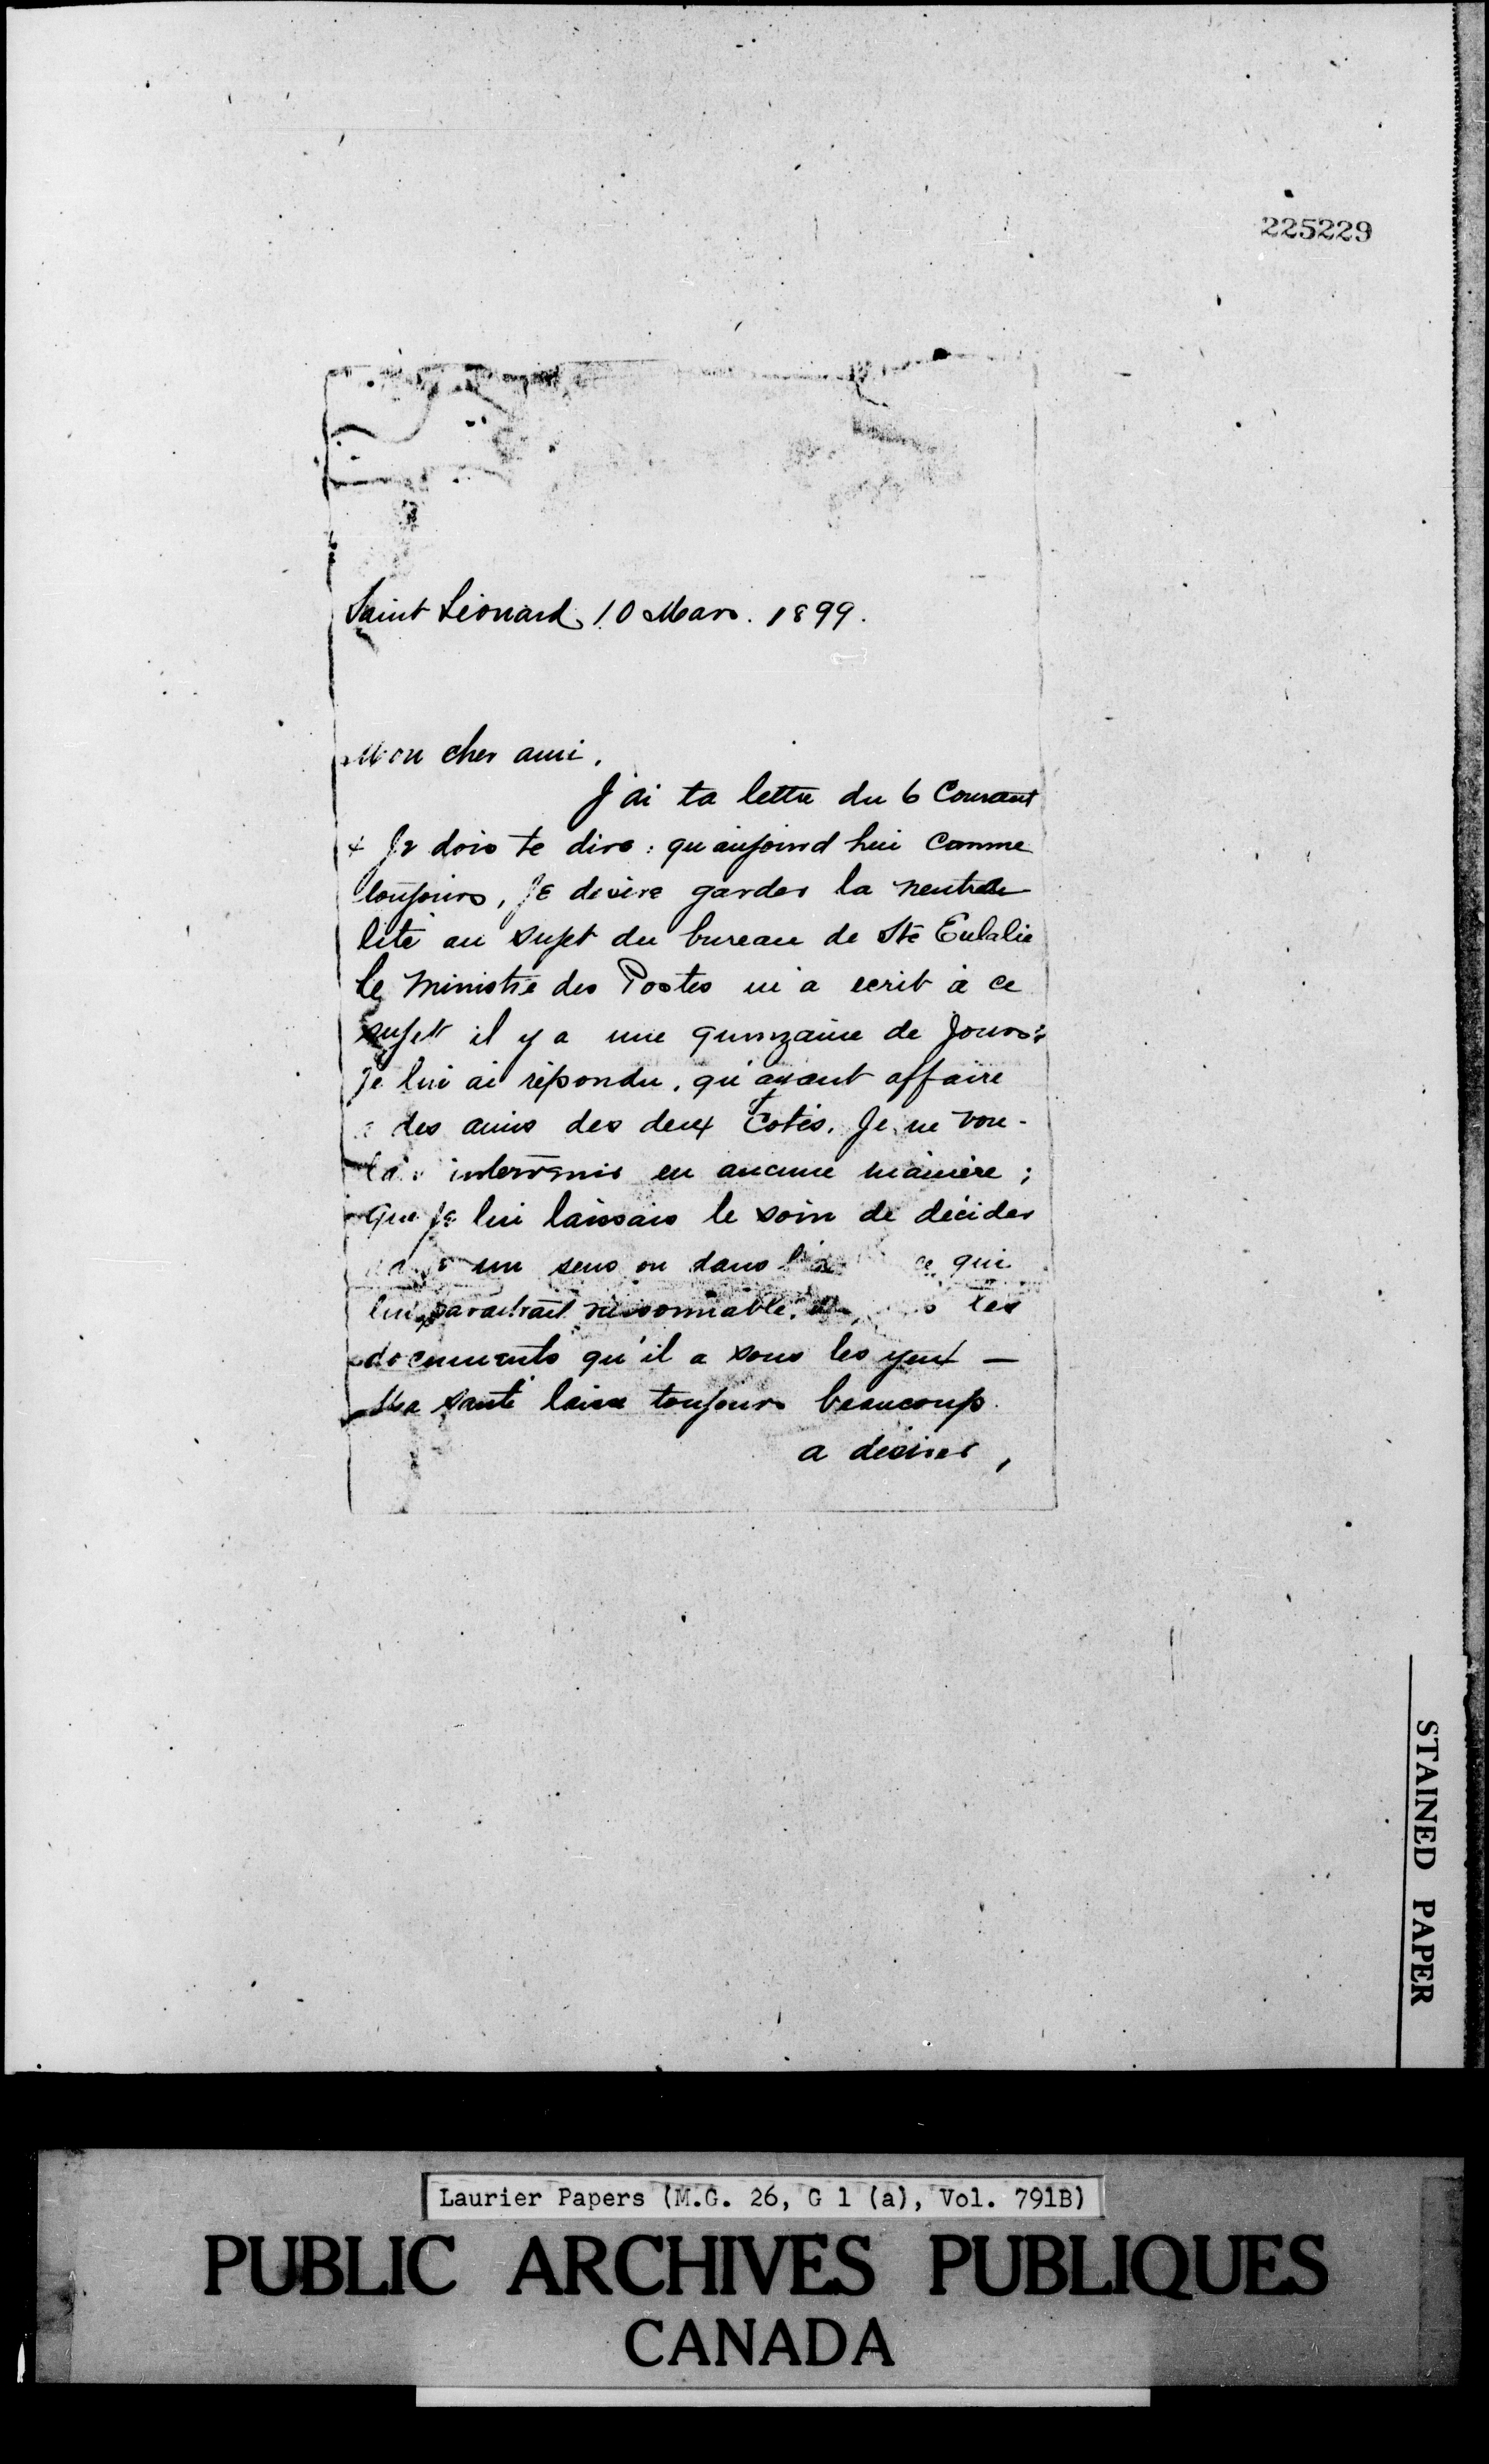 225229
Saint Léonard, 10 Mars. 1899.
Mon cher ami,
J'ai ta lettre du 6 Courant
& Je dois te dire : qu'aujourd'hui Comme
toujours, Je desire garder la neutra
lité au sujet du bureau de Ste Eulalie
le Ministre des Postes m'a ecrit à ce
sujet il y a une quinzaine de Jours:
Je lui ai répondu, qu'ayant affaire
a des amis des deux Cotés, Je ne vou-
lais intervenir en aucune manière ;
que Je lui laissais le soin de décider
un sens ou dans ce qui
lui paraitrait raisonnable. les
documents qu'il a sous les yeux —
Ma santé laisse toujours beaucoup
a desirer,
STAINED PAPER
Laurier Papers (M.G. 26, G 1 (a), Vol. 791B)
PUBLIC ARCHIVES PUBLIQUES
CANADA